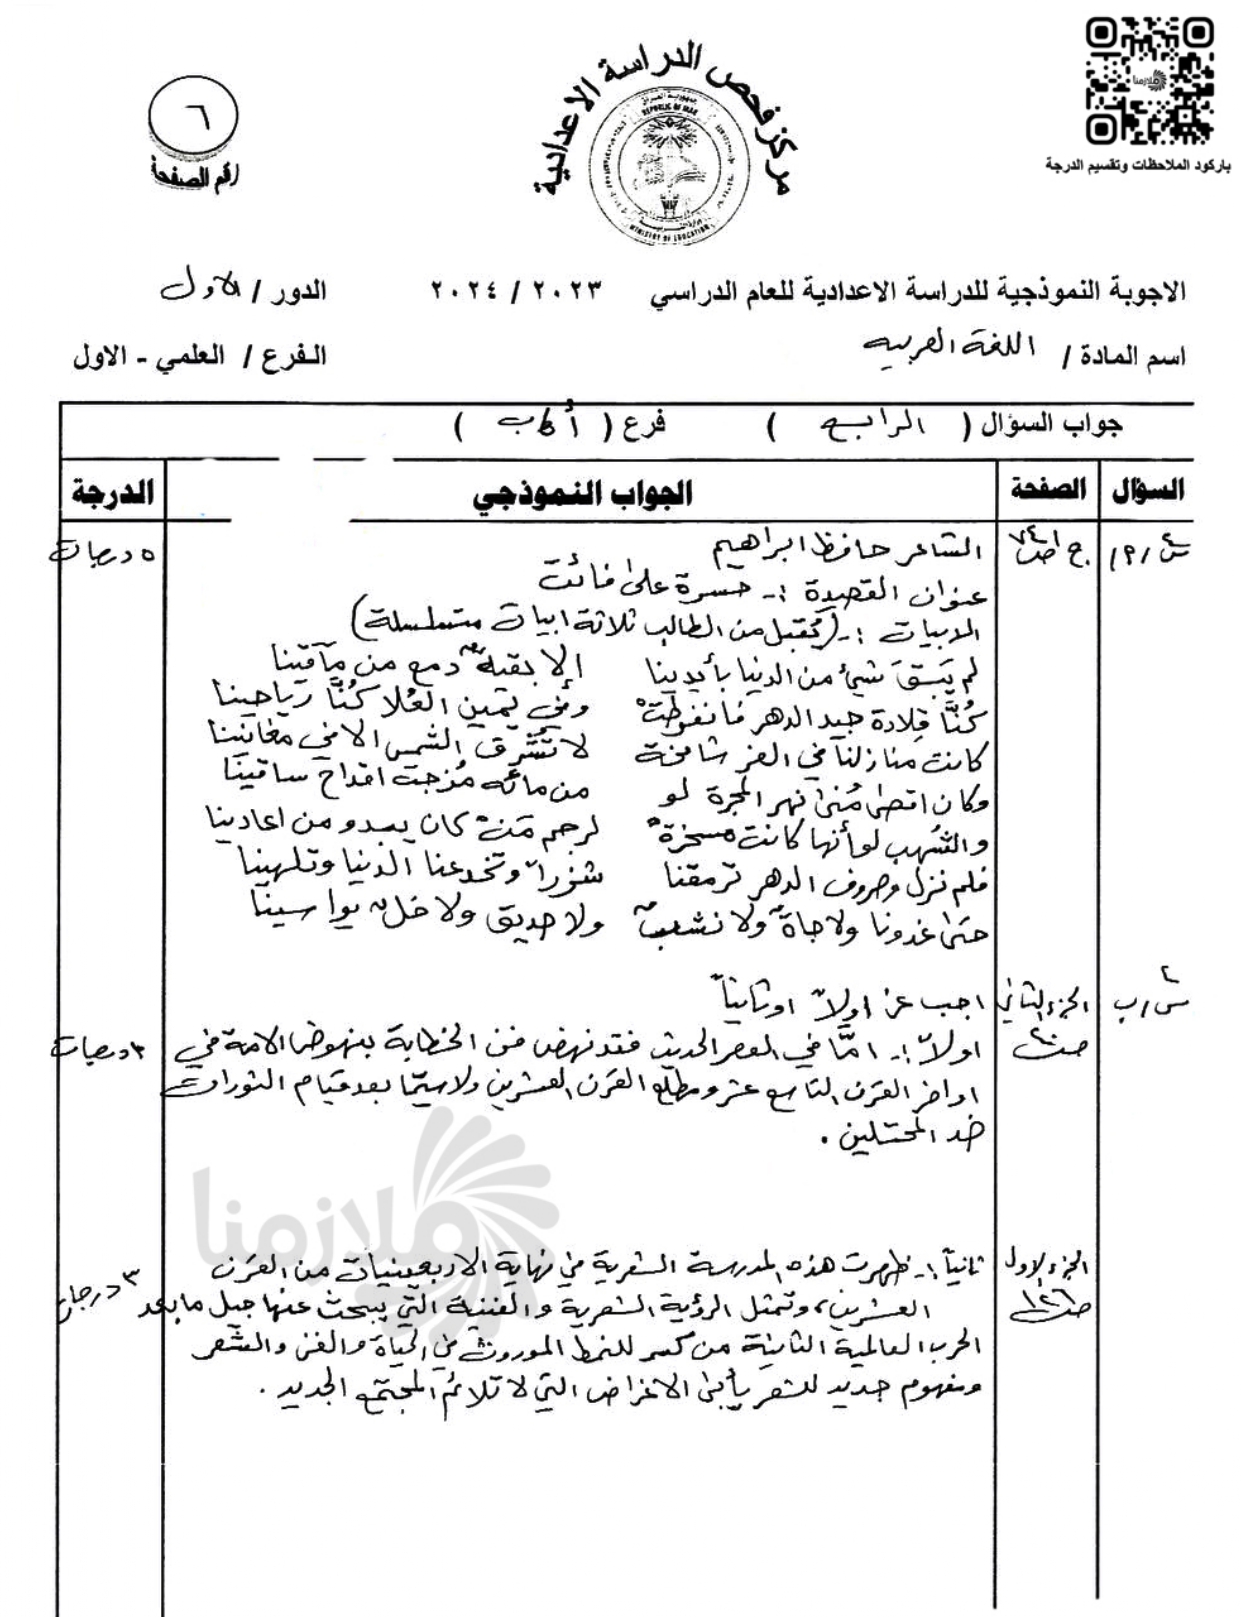 باركود الملاحظات وتقسيم الدرجة
مركز فحص الدراسة الاعدادية
REPUBLIC OF IRAQ
MINISTRY OF EDUCATION
٦
رقم الصفحة
الاجوبة النموذجية للدراسة الاعدادية للعام الدراسي ٢٠٢٣ / ٢٠٢٤ الدور / الاول
اسم المادة / اللغة العربيه الفرع / العلمي - الاول
جواب السؤال ( الرابع ) فرع ( أ / ب )
السؤال الصفحة الجواب النموذجي الدرجة
س٤/أ ج١ ص٧٤ الشاعر حافظ ابراهيم ٥ درجات
عنوان القصيدة :- حسرة على فائت
الابيات :- (يُقبل من الطالب ثلاثة ابيات متسلسلة)
لم يَبقَ شيءٌ من الدنيا بأيدينا إلا بقيةُ دمعٍ من مآقينا
كُنَّا قلادة جيد الدهر فانفرطتْ وفي يمين العُلا كُنَّا رياحينا
كانت منازلنا في العز شامخة لا تُشرق الشمس الا في مغانينا
وكان اقصى مُنى نهر المجرة لو من مائه مُزجت اقداح ساقينا
والشهب لو أنها كانت مسخرةً لرجم مَنْ كان يبدو من اعادينا
فلم نزل وصروف الدهر ترمقنا شزراً وتخدعنا الدنيا وتلهينا
حتى غدونا ولا جاهٌ ولا نشبٌ ولا صديق ولا خلٌ يواسينا
س٤/ب الجزء الثاني اجب عن اولاً او ثانياً
ص٦٠ اولاً :- امّا في العصر الحديث فقد نهض فن الخطابة بنهوض الامة في ٣ درجات
اواخر القرن التاسع عشر ومطلع القرن العشرين ولاسيّما بعد قيام الثورات
ضد المحتلين .
ملازمنا
الجزء الاول ثانياً :- ظهرت هذه المدرسة الشعرية في نهاية الاربعينيات من القرن
ص١٢٦ العشرين، وتمثل الرؤية الشعرية والفنية التي يبحث عنها جيل ما بعد ٣ درجات
الحرب العالمية الثانية من كسر للنمط الموروث في الحياة والفن والشعر
ومفهوم جديد للشعر يأبى الاغراض التي لا تلائم المجتمع الجديد .